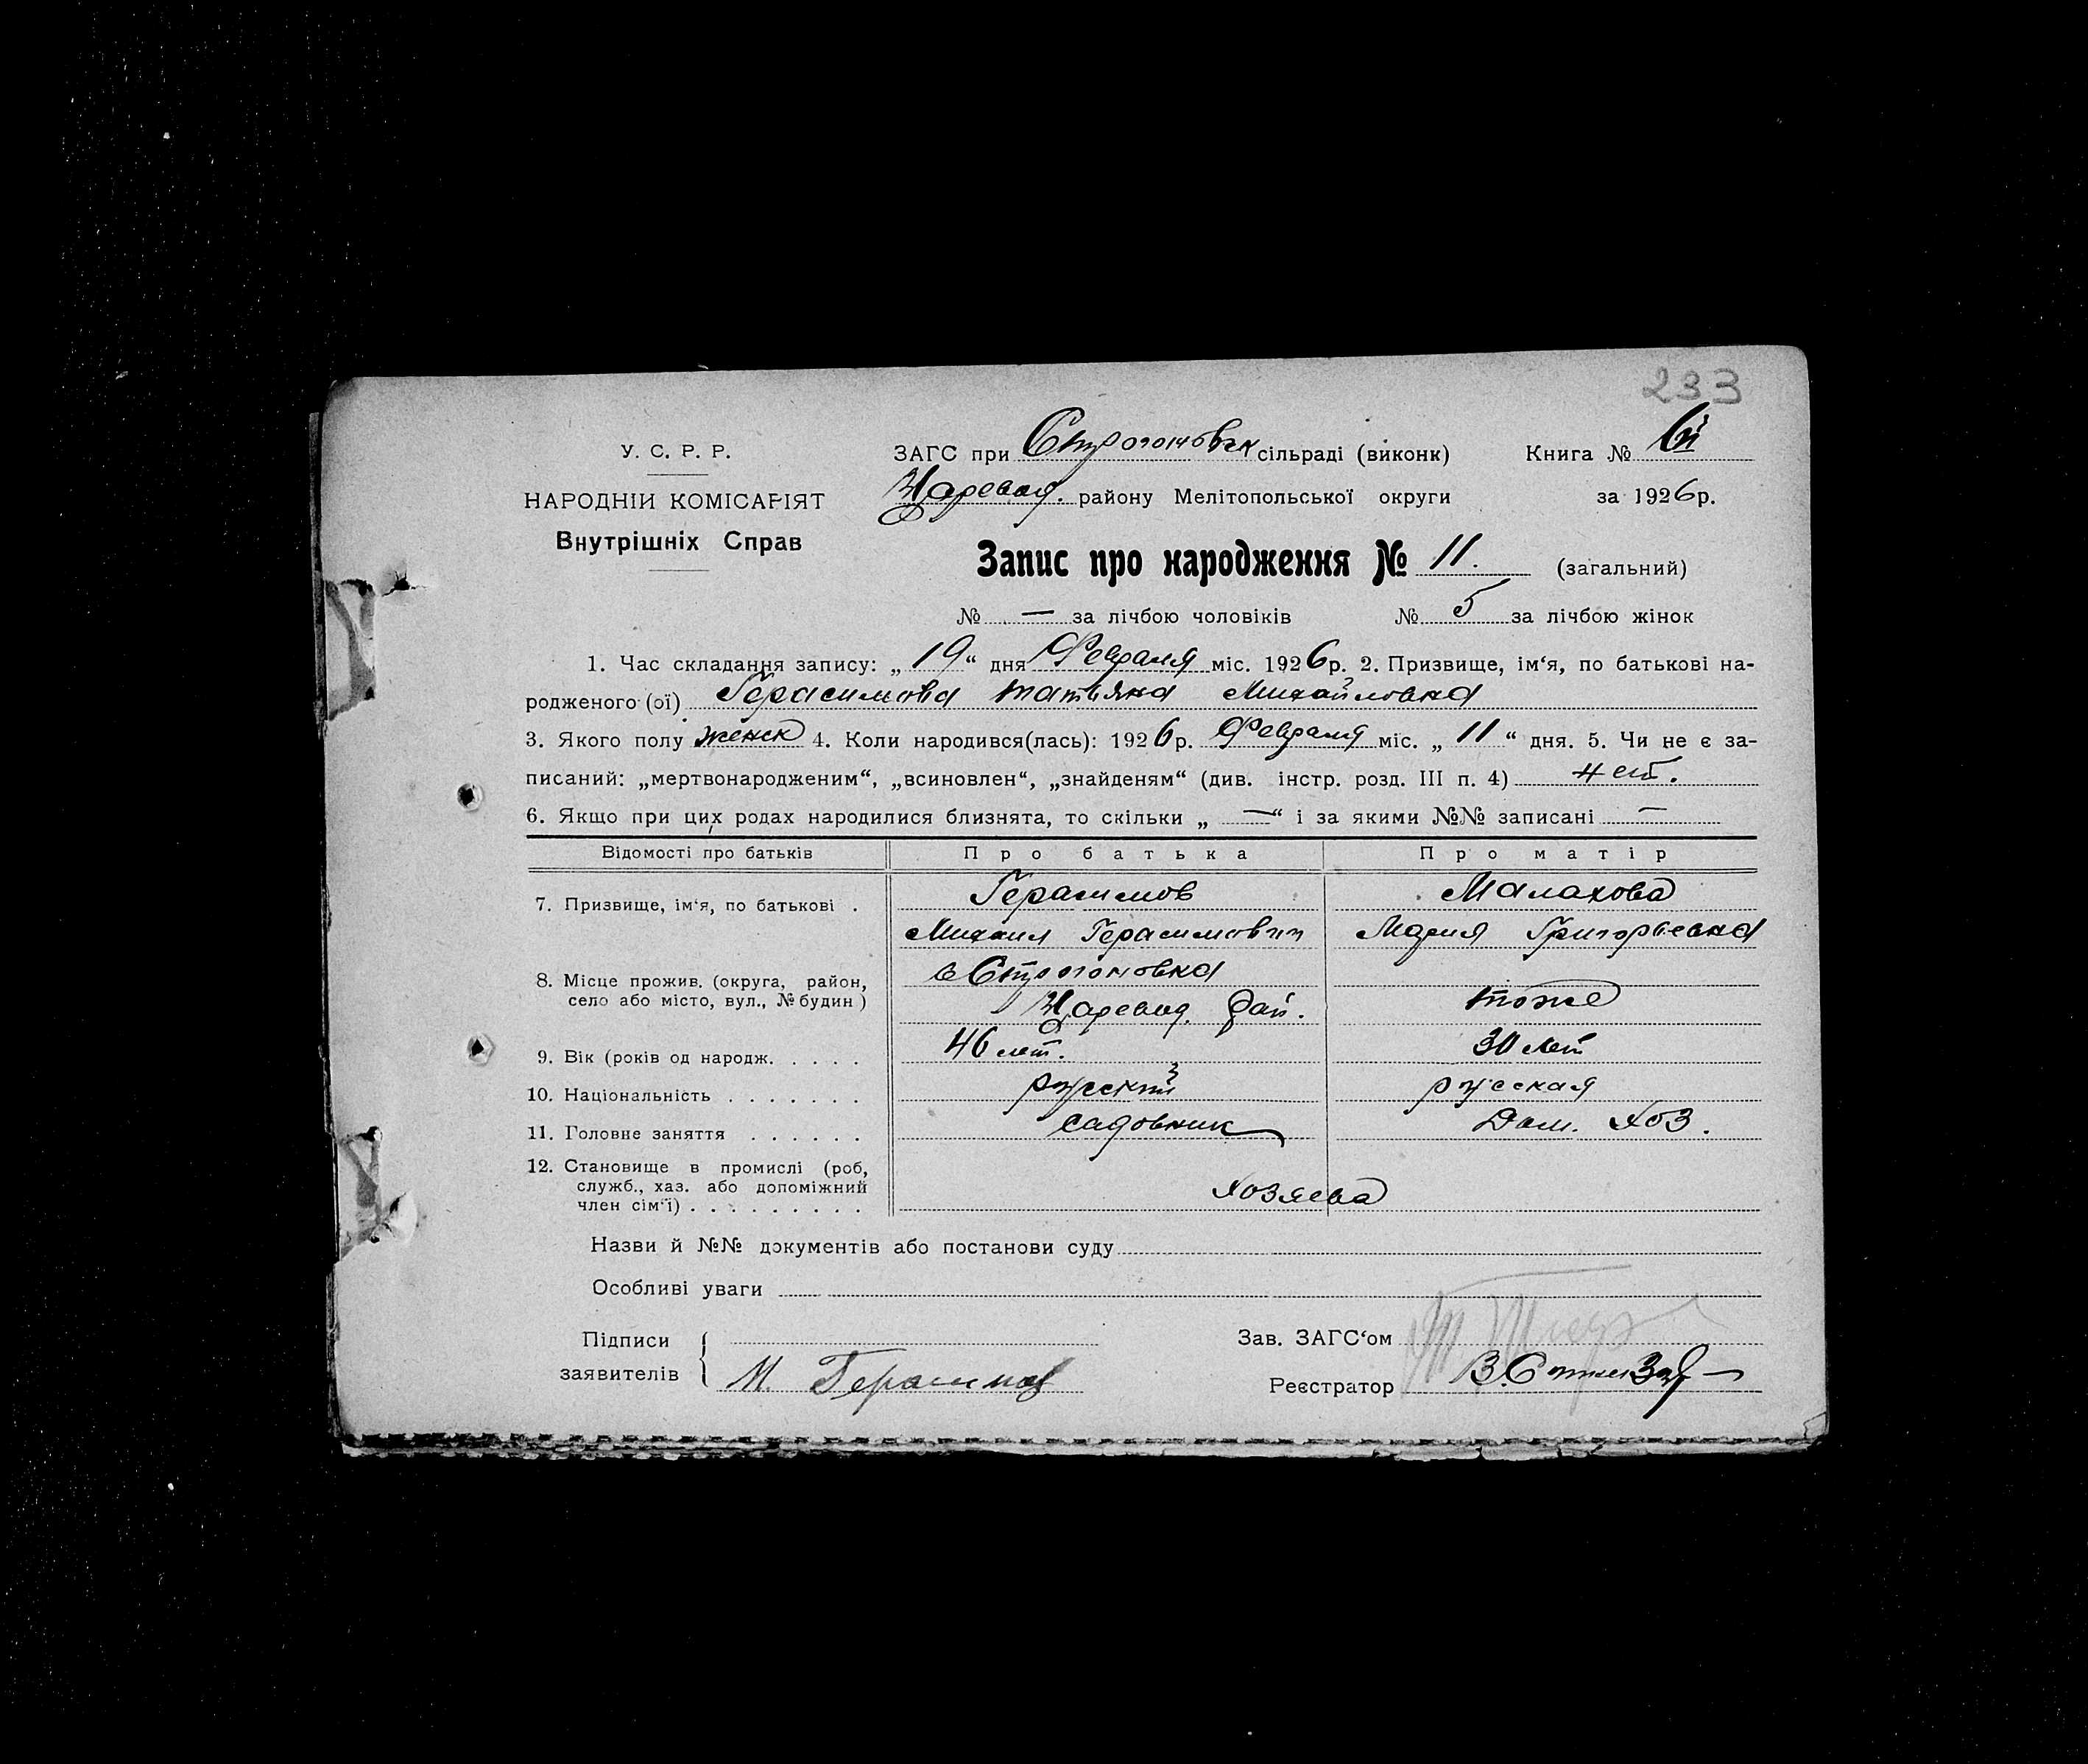 233
У. С. Р. Р.
НАРОДНІЙ КОМІСАРІЯТ
Внутрішніх Справ
ЗАГС при Строгоновск сільраді (виконк) Книга №
Царевод. району Мелітопольської округи за 1926 р.
Запис про народження № 11. (загальний)
№ — за лічбою чоловіків № 5 за лічбою жінок
1. Час складання запису: „19“ дня Февраля міс. 1926 р. 2. Призвище, ім‘я, по батькові на-
родженого (ої) Герасимова Татьяна Михайловна
3. Якого полу женск 4. Коли народився(лась): 1926 р. Февраля міс. „11“ дня. 5. Чи не є за-
писаний: „мертвонародженим“, „всиновлен“, „знайденям“ (див. інстр. розд. III п. 4) нет.
6. Якщо при цих родах народилися близнята, то скільки „—“ і за якими №№ записані —
Відомості про батьків Про батька Про матір
7. Призвище, ім‘я, по батькові . Герасимов Малахова
Михаил Герасимович Мария Григорьевна
8. Місце прожив. (округа, район, село або місто, вул., № будин ) с Строгоновка
Царевод. рай. тоже
9. Вік (років од народж. . . . . 46 лет. 30 лет
10. Національність . . . . . . . русский русская
11. Головне заняття . . . . . . садовник Дом. хоз.
12. Становище в промислі (роб,
служб., хаз. або допоміжний
член сім‘ї) . . . . . . . . . хозяева
Назви й №№ документів або постанови суду
Особливі уваги
Підписи Зав. ЗАГС‘ом
заявителів М. Герасимов Реєстратор